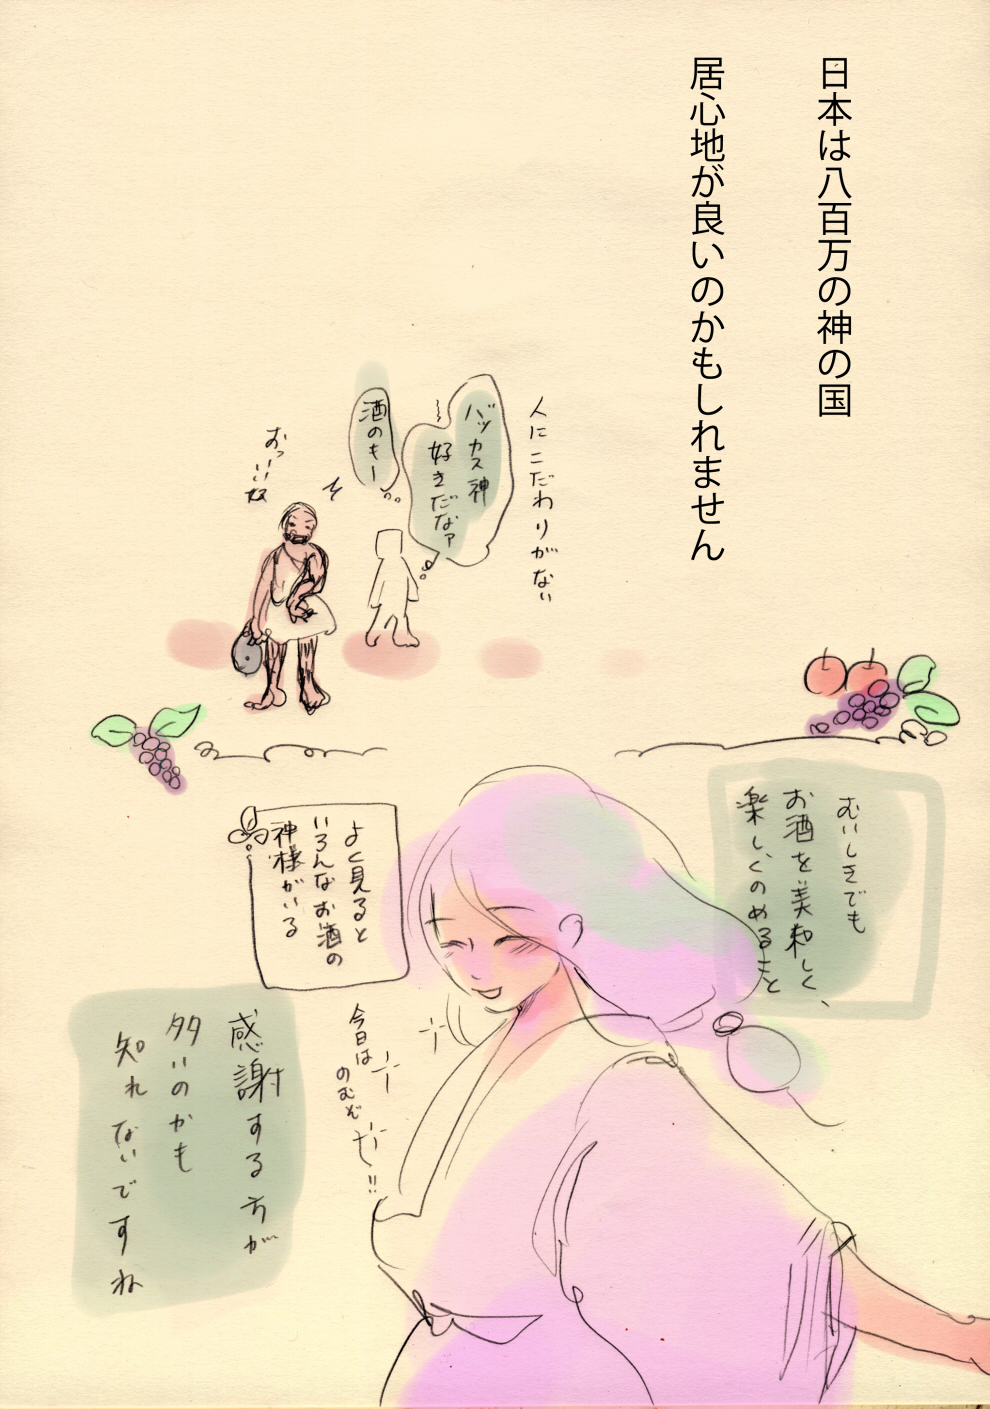 日本は八百万の神の国
居心地が良いのかもしれません
人にこだわりがない
バッカス神
好きだなァ
酒のもー
おっいい奴
むいしきでも
お酒を美和しく、
楽しくのめること
よく見ると
いろんなお酒の
神様がいる
今日は
のむぞ
感謝する方が
多いのかも
知れないですね